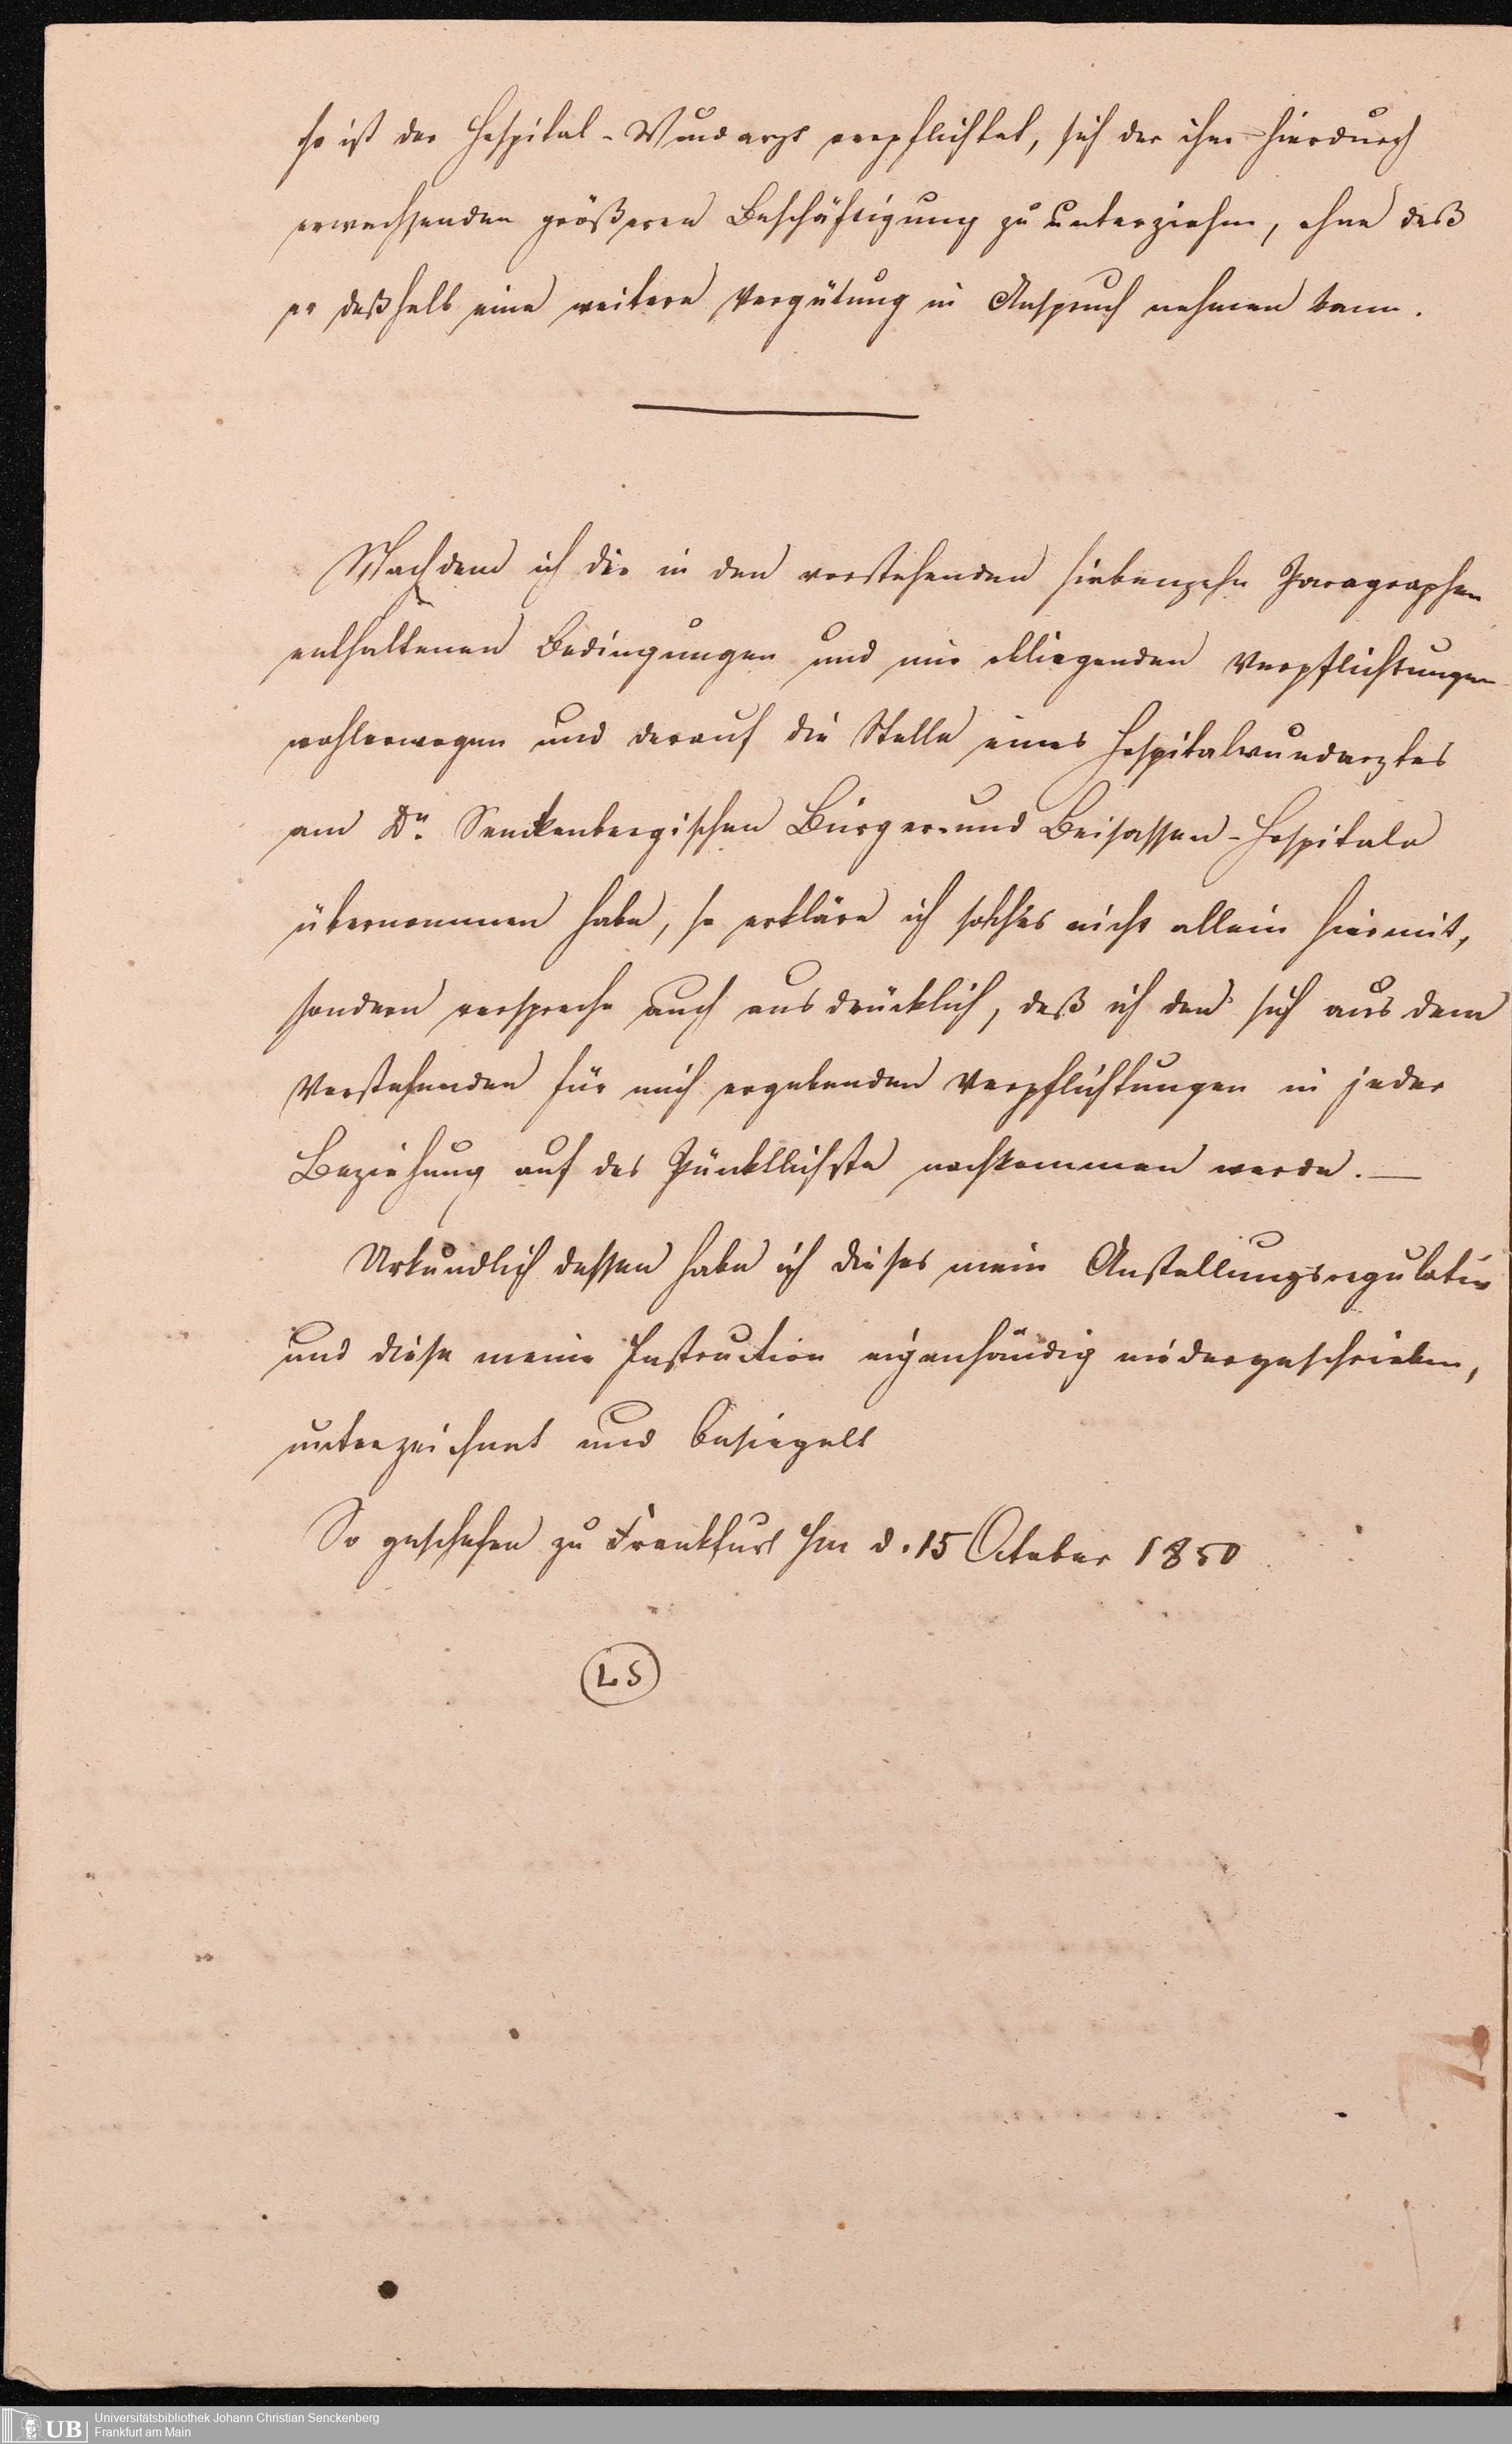 so ist der Hospital-Wundarzt verpflichtet, sich der ihm hierdurch
erwachsenden größeren Beschäftigung zu unterziehen, ohne daß
er deßhalb eine weitere Vergütung in Anspruch nehmen kann.
Nachdem ich die in den vorstehenden siebenzehn Paragraphen
enthaltenen Bedingungen und mir obliegenden Verpflichtungen
wohlerwogen und darauf die Stelle eines Hospitalwundarztes
am Dr. Senckenbergischen Bürger- und Beisassen-Hospitale
übernommen habe, so erkläre ich solches nicht allein hiermit,
sondern verspreche auch ausdrücklich, daß ich den sich aus dem
Vorstehenden für mich ergebenden Verpflichtungen in jeder
Beziehung auf das Pünktlichste nachkommen werde. —
Urkundlich dessen habe ich dieses mein Anstellungsregulativ
und diese meine Instruction eigenhändig niedergeschrieben,
unterzeichnet und besiegelt
So geschehen zu Frankfurt d. 15 October 1850
LS
UB
Universitätsbibliothek Johann Christian Senckenberg
Frankfurt am Main